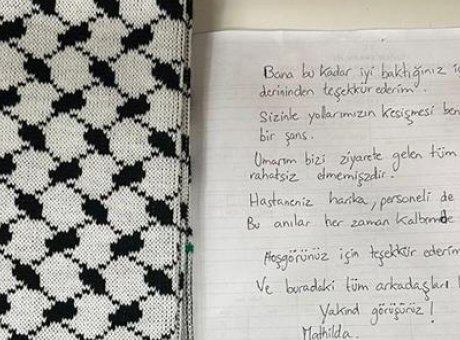 Bana bu kadar iyi baktığınız iç
derininden teşekkür ederim.
Sizinle yollarımızın kesişmesi ben
bir şans.
Umarım bizi ziyarete gelen tüm
rahatsız etmemişzdir.
Hastaneniz harika, personeli de
Bu anılar her zaman kalbimde
Hoşgörünüz için teşekkür ederim
Ve buradaki tüm arkadaşları
Yakınd görüşürüz!
Mathilda.